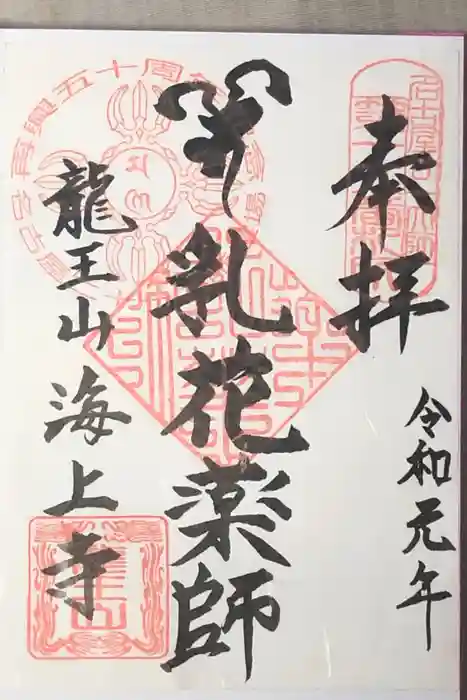 奉拝
令和元年
乳花薬師
龍王山 海上寺